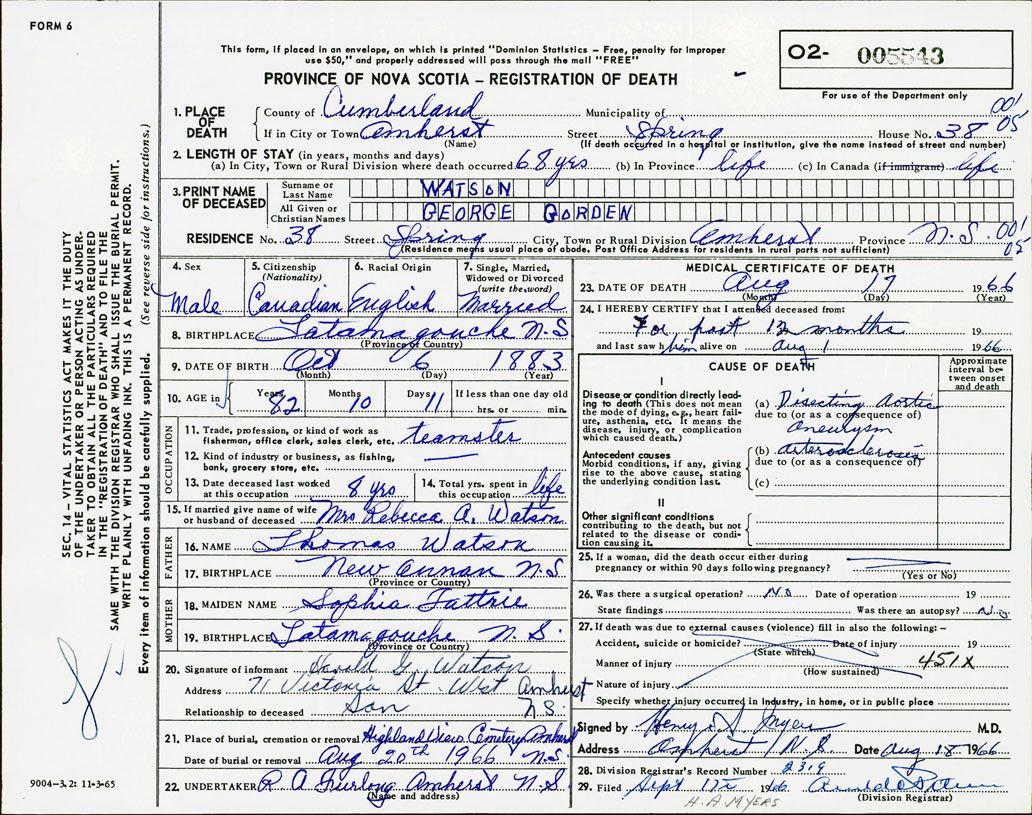 FORM 6
This form, if placed in an envelope, on which is printed "Dominion Statistics – Free, penalty for improper
use $50," and properly addressed will pass through the mail "FREE"
PROVINCE OF NOVA SCOTIA – REGISTRATION OF DEATH
02- 005543
For use of the Department only
001
05
1. PLACE OF DEATH
County of Cumberland Municipality of
If in City or Town Amherst Street Spring House No. 38
(Name) (If death occurred in a hospital or institution, give the name instead of street and number)
2. LENGTH OF STAY (in years, months and days)
(a) In City, Town or Rural Division where death occurred 68 yrs (b) In Province life (c) In Canada (if immigrant) life
3. PRINT NAME OF DECEASED
Surname or Last Name WATSON
All Given or Christian Names GEORGE GORDEN
RESIDENCE No. 38 Street Spring City, Town or Rural Division Amherst Province N.S. 001
05
(Residence means usual place of abode. Post Office Address for residents in rural parts not sufficient)
4. Sex
Male
5. Citizenship (Nationality)
Canadian
6. Racial Origin
English
7. Single, Married, Widowed or Divorced (write the word)
Married
8. BIRTHPLACE Tatamagouche N.S
(Province or Country)
9. DATE OF BIRTH Oct 6 1883
(Month) (Day) (Year)
10. AGE in Years 82 Months 10 Days 11 If less than one day old
hrs. or min.
OCCUPATION
11. Trade, profession, or kind of work as
fisherman, office clerk, sales clerk, etc. teamster
12. Kind of industry or business, as fishing,
bank, grocery store, etc.
13. Date deceased last worked
at this occupation 8 yrs
14. Total yrs. spent in
this occupation life
15. If married give name of wife
or husband of deceased Mrs Rebecca A. Watson
FATHER
16. NAME Thomas Watson
17. BIRTHPLACE New Annan N.S
(Province or Country)
MOTHER
18. MAIDEN NAME Sophia Tattrie
19. BIRTHPLACE Tatamagouche N.S.
(Province or Country)
20. Signature of informant Harold G. Watson
Address 71 Victoria St. West Amherst
Relationship to deceased Son N.S.
21. Place of burial, cremation or removal Highland View Cemetery Amherst
Date of burial or removal Aug 20th 1966 N.S
22. UNDERTAKER R A Furlong Amherst N.S.
(Name and address)
MEDICAL CERTIFICATE OF DEATH
23. DATE OF DEATH Aug 17 1966
(Month) (Day) (Year)
24. I HEREBY CERTIFY that I attended deceased from:
For past 12 months 19
and last saw him alive on Aug 1 1966
CAUSE OF DEATH
Approximate interval between onset and death
I
Disease or condition directly leading
to death (This does not mean
the mode of dying, e.g., heart failure,
asthenia, etc. It means the
disease, injury, or complication
which caused death.)
(a) Dissecting Aortic
due to (or as a consequence of)
aneurysm
Antecedent causes
Morbid conditions, if any, giving
rise to the above cause, stating
the underlying condition last.
(b) arteriosclerosis
due to (or as a consequence of)
(c)
II
Other significant conditions
contributing to the death, but not
related to the disease or condition
causing it.
25. If a woman, did the death occur either during
pregnancy or within 90 days following pregnancy?
(Yes or No)
26. Was there a surgical operation? No Date of operation 19
State findings Was there an autopsy? No
27. If death was due to external causes (violence) fill in also the following:–
Accident, suicide or homicide? Date of injury 19
(State which)
Manner of injury 451X
(How sustained)
Nature of injury
Specify whether injury occurred in Industry, in home, or in public place
Signed by Henry S. Myers M.D.
Address Amherst N.S. Date Aug 18 1966
28. Division Registrar's Record Number 2319
29. Filed Sept 1966
(Division Registrar)
H.A. MYERS
SEC. 14 – VITAL STATISTICS ACT MAKES IT THE DUTY
OF THE UNDERTAKER OR PERSON ACTING AS UNDER-
TAKER TO OBTAIN ALL THE PARTICULARS REQUIRED
IN THE "REGISTRATION OF DEATH" AND TO FILE THE
SAME WITH THE DIVISION REGISTRAR WHO SHALL ISSUE THE BURIAL PERMIT.
WRITE PLAINLY WITH UNFADING INK. THIS IS A PERMANENT RECORD.
Every item of information should be carefully supplied. (See reverse side for instructions.)
9004-3.2: 11-3-65